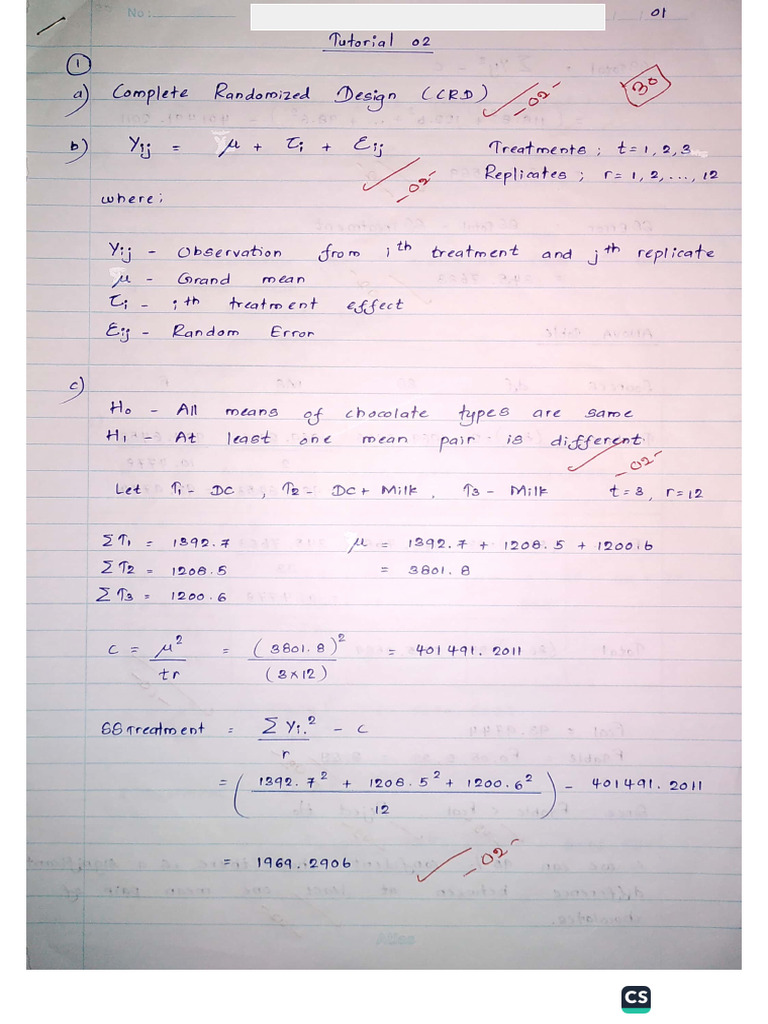 No: 01
Tutorial 02
1
a) Complete Randomized Design (CRD) -02- 30
b) Yij = μ + τi + Eij Treatments ; t = 1, 2, 3
-02- Replicates ; r = 1, 2, ..., 12
where;
Yij - Observation from ith treatment and jth replicate
μ - Grand mean
τi - ith treatment effect
Eij - Random Error
c)
H0 - All means of chocolate types are same
H1 - At least one mean pair is different.
-02-
Let T1 - DC , T2 - DC + Milk , T3 - Milk t = 3, r = 12
ΣT1 = 1392.7 μ = 1392.7 + 1208.5 + 1200.6
ΣT2 = 1208.5 = 3801.8
ΣT3 = 1200.6
C = μ²/tr = (3801.8)²/(3×12) = 401491.2011
SS Treatment = ΣYi.²/r - C
= (1392.7² + 1208.5² + 1200.6²/12) - 401491.2011
= 1969.2906 -02-
CS